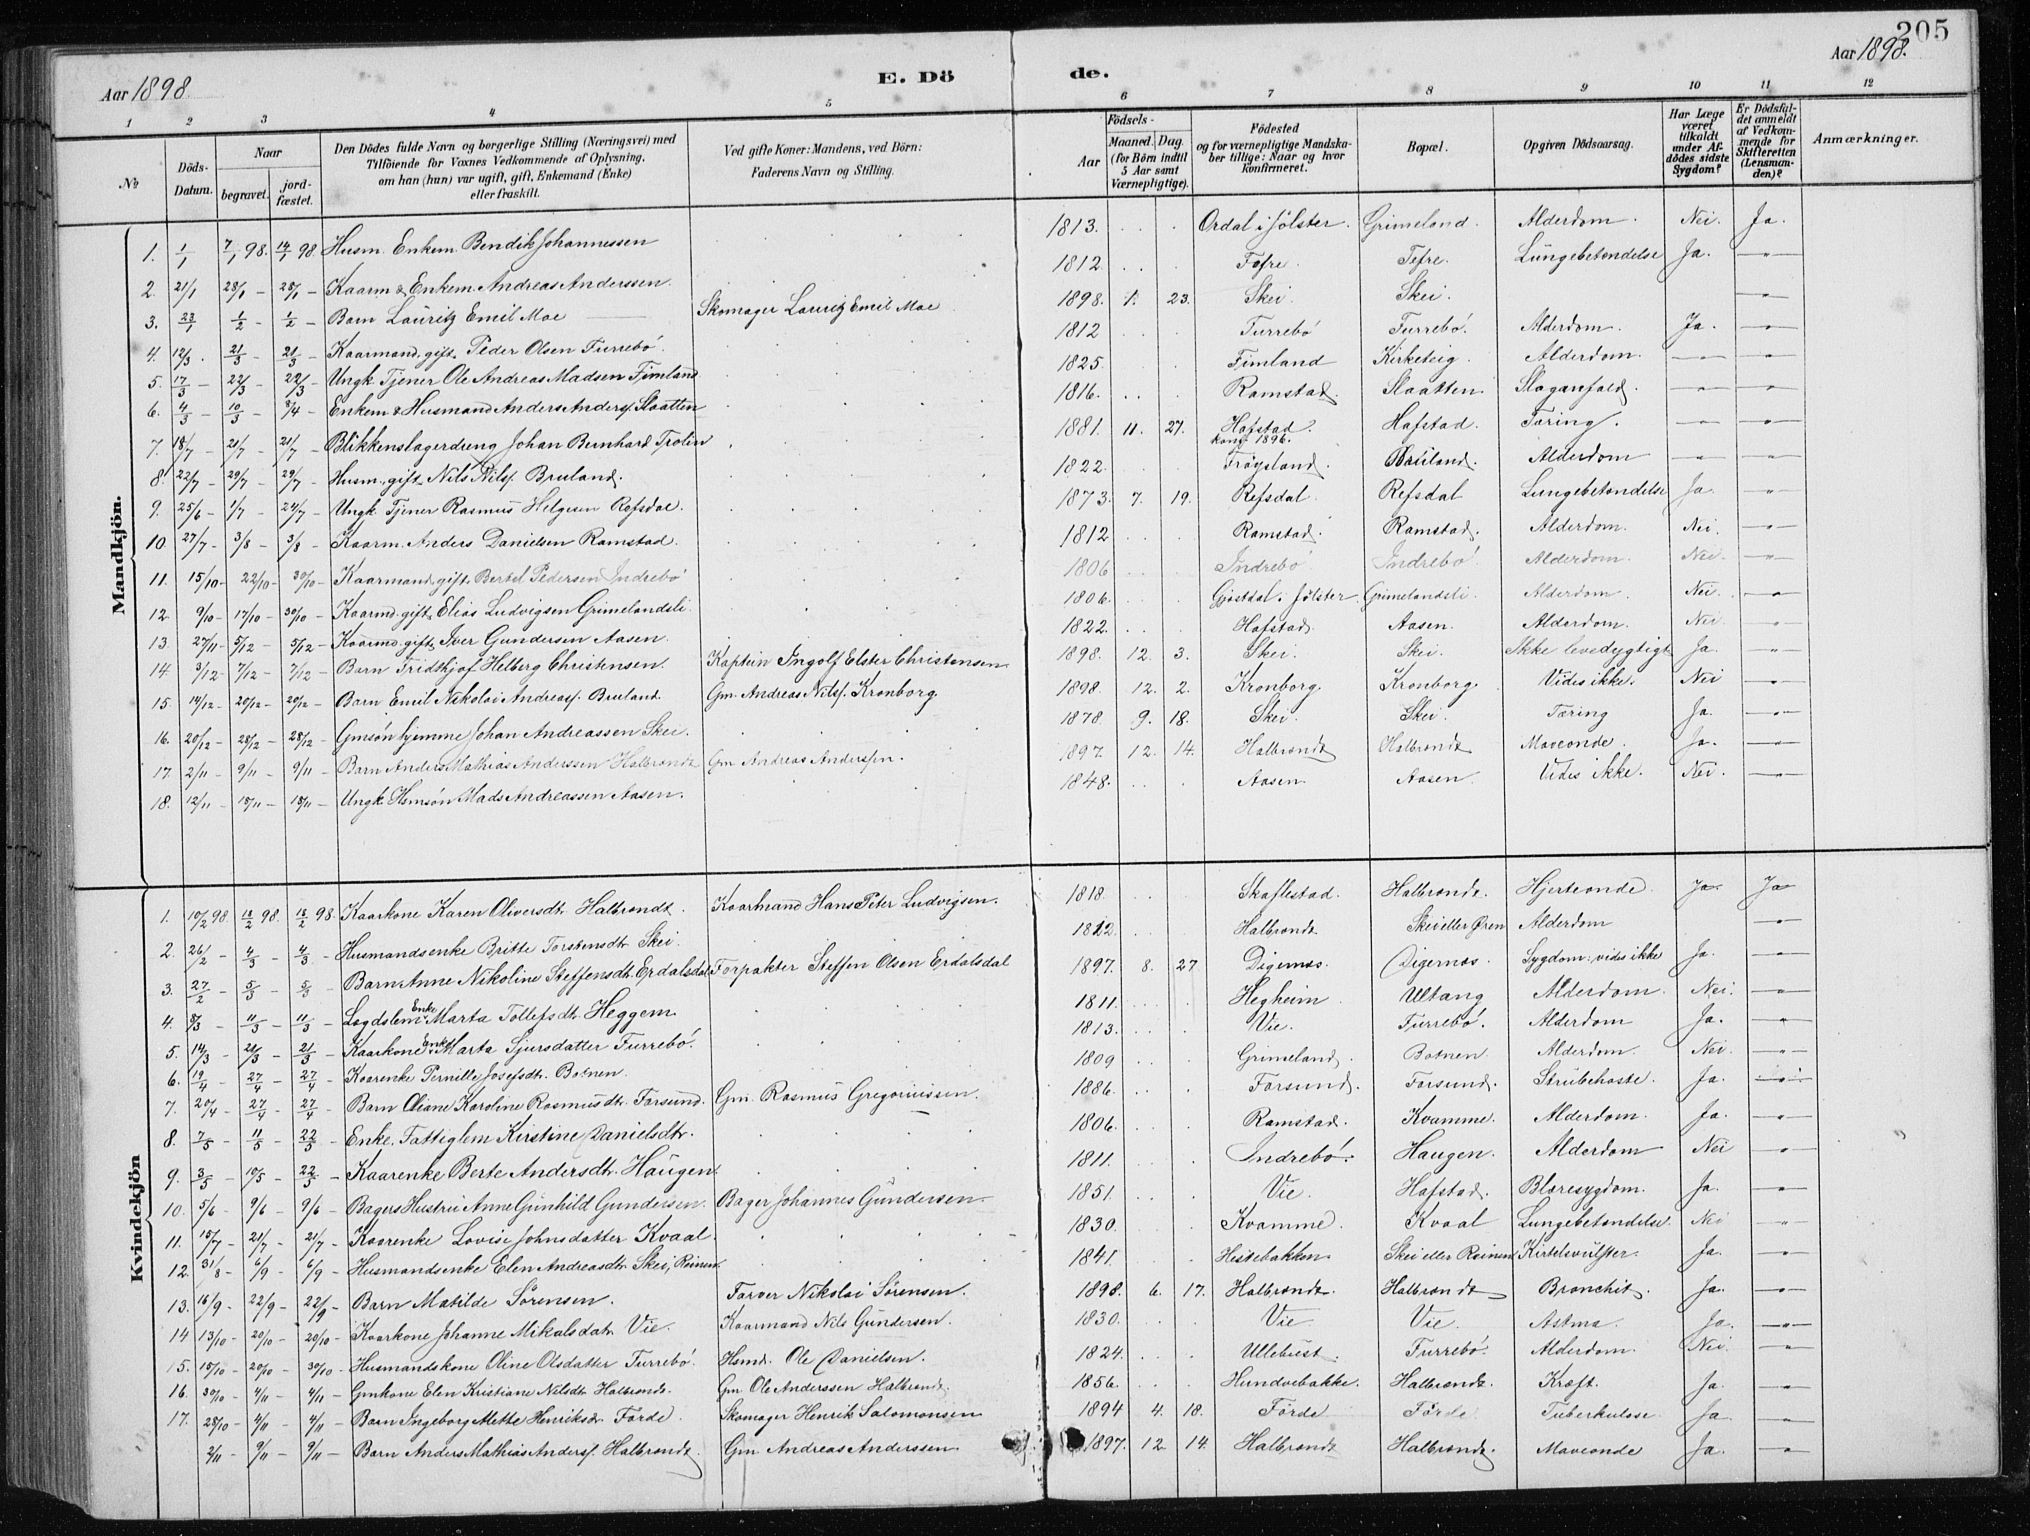 205
Aar 1898. E. Dö de. Aar 1898.
1 2 3 4 5 6 7 8 9 10 11 12
№ Döds-Datum. Naar begravet. jordfæstet. Den Dödes fulde Navn og borgerlige Stilling (Næringsvei) med Tilföiende for Voxnes Vedkommende af Oplysning, om han (hun) var ugift, gift, Enkemand (Enke) eller fraskilt. Ved gifte Koner: Mandens, ved Börn: Faderens Navn og Stilling. Aar Födsels- Maaned. Dag. (for Börn indtil 5 Aar samt Værnepligtige). Födested og for værnepligtige Mandskaber tillige: Naar og hvor konfirmeret. Bopæl. Opgiven Dödsaarsag. Har Læge været tilkaldt under Afdödes sidste Sygdom? Er Dödsfaldet anmeldt af Vedkommende for Skifteretten (Lensmanden)? Anmærkninger.
Mandkjön.
1. 1/1 7/1 98. 14/1 98. Husm. Enkem. Bendik Johannessen 1813. Ordal i Jølster. Grimeland. Alderdom. Nei. Ja.
2. 21/1 28/1 – 28/1 – Kaarm & Enkem. Andreas Anderssen. 1812. Tefre. Tefre. Lungebetendelse Ja. –"–
3. 23/1 1/2 – 1/2 – Barn Lauritz Emil Moe Skomager Lauritz Emil Moe 1898. 1. 23. Skei. Skei. –"–
4. 12/3. 21/3 – 21/3 – Kaarmand, gift, Peder Olsen Furrebö. 1812 Furrebö Furrebö. Alderdom. Ja. –"–
5. 17/3 – 22/3 – 22/3 – Ungk. Tjener Ole Andreas Madsen Fimland 1825. Fimland Kirketeig. Alderdom. –"– –"–
6. 4/3 – 10/3 – 8/4 – Enkem & Husmand Anders Anders. Slaatten 1816. Ramstad. Slaatten. Slaganfald. –"– –"–
7. 18/7 – 21/7 – 21/7 – Blikkenslagerdreng Johan Bernhard Trolin 1881. 11. 27. Hafstad. konf 1896. Hafstad. Tæring. –"– –"–
8. 22/7 – 29/7 – 29/7 – Husm. gift. Nils Nils. Bruland. 1822. Frøysland. Bruland. Alderdom –"– –"–
9. 25/6 – 1/7 – 24/7 – Ungk. Tjener Rasmus Helgesen Refsdal. 1873. 7. 19. Refsdal. Refsdal Lungebetendelse Ja. –"–
10. 27/7 – 3/8 – 3/8 – Kaarm. Anders Danielsen Ramstad. 1812 Ramstad. Ramstad. Alderdom. Nei. –"–
11. 15/10 – 22/10 – 30/10 – Kaarmand, gift, Bertel Pedersen Indrebö 1806 Indrebö Indrebö. Alderdom. Nei. –"–
12. 9/10 – 17/10 – 30/10 – Kaarmd. gift. Elias Ludvigsen Grimelandsli 1806. Gjøsdal i Jølster. Grimelandsli. Alderdom. Nei. –"–
13. 27/11 – 5/12 – 5/12 – Kaarmd. gift, Iver Gundersen Aasen. 1822. Hafstad. Aasen. Alderdom. Nei. –"–
14. 3/12 – 7/12 – 7/12 – Barn Fridthjof Helberg Christensen. Kaptein Ingolf Elster Christensen 1898. 12. 3. Skei. Skei. Ikke levedygtigt Ja. –"–
15. 14/12 – 20/12 – 20/12 – Barn Emil Nikolai Andreas. Bruland. Gm. Andreas Nils. Kronborg. 1898. 12. 2. Kronborg. Kronborg. Vides ikke. Nei –"–
16. 20/12 – 28/12 – 28/12 – Gmsön hjemme Johan Andreassen Skei. 1878. 9. 18. Skei. Skei. Tæring Ja. –"–
17. 2/11 – 9/11 – 9/11 – Barn Anders Mathias Anderssen Halbrendt Gm Andreas Anderssen. 1897. 12. 14. Halbrendt Halbrendt Maveonde. Ja. –"–
18. 12/11 – 18/11 – 18/11 – Ungk. Hmsön Mads Andreassen Aasen. 1848. Aasen. Aasen. Vides ikke. Nei. –"–
Kvindekjön
1. 10/2 98. 18/2 98. 18/2 98. Kaarkone Karen Oliversdtr Halbrendt. Kaarmand Hans Peter Ludvigsen. 1818. Skaflestad. Halbrendt. Hjerteonde. Ja. Ja
2. 26/2 – 4/3 – 4/3 – Husmandsenke Britte Torstensdtr. Skei. 1812. Halbrendt Skei eller Øren Alderdom –"–
3. 27/2 – 5/3 – 5/3 – Barn Anne Nikoline Steffensdtr. Erdalsdal Forpakter Steffen Olsen Erdalsdal 1897. 8. 27 Digernes. Digernes. Sygdom: vides ikke Ja. –"–
4. 8/3 – 11/3 – 11/3 – Lægdslem Enke Marta Tollefsdtr. Heggem. 1811. Hegheim Ultang Alderdom. Nei. –"–
5. 14/3 – 21/3 – 21/3 – Kaarkone Enke Marta Sjursdatter Furrebö. 1813. Vie. Furrebö. Alderdom Ja. –"–
6. 19/4 – 27/4 – 27/4 – Kaarenke Pernille Josefsdtr. Botnen. 1809 Grimeland. Botnen. Alderdom. Nei. –"–
7. 20/4 – 27/4 – 27/4 – Barn Oliane Karoline Rasmusdtr. Farsund. Gm. Rasmus Gregoriussen. 1886. Farsund. Farsund. Strubehoste. Ja. –"–
8. 7/5 – 11/5 – 22/5 – Enke. Fattiglem Kirstine Danielsdtr. 1806. Ramstad. Kvamme. Alderdom. Ja. –"–
9. 3/5 – 10/5 – 22/5 – Kaarenke Berte Andersdtr. Haugen. 1811. Indrebö. Haugen. Alderdom Nei –"–
10. 5/6 – 9/6 – 9/6 – Bagers Hustru Anne Gunhild Gundersen. Bager Johannes Gundersen. 1851. Vie. Hafstad. Blæresygdom. Ja. –"–
11. 15/7 – 21/7 – 21/7 – Kaarenke Lovise Johnsdatter Kvaal. 1830. Kvamme. Kvaal Lungebetendelse. Nei –"–
12. 31/8 – 6/9 – 6/9 – Husmandsenke Elen Andreasdtr. Skei, Reinen. 1841. Hestebakken. Skei eller Reinen Kirtelsvulster. Ja. –"–
13. 16/9 – 22/9 – 22/9 – Barn Matilde Sörensen. Farver Nikolai Sörensen. 1898. 6. 17. Halbrendt. Halbrendt Bronchit. Ja. –"–
14 13/10 – 20/10 – 20/10 – Kaarkone Johanne Mikalsdatr. Vie. Kaarmand Nils Gundersen. 1830. Vie Vie. Astma. Ja. –"–
15. 15/10 – 20/10 – 30/10 – Husmandskone Oline Olsdatter Furrebö. Hsmd. Ole Danielsen. 1824. Ullebust. Furrebö. Alderdom. Nei. –"–
16. 30/10 – 4/11 – 4/11 – Gmkone Elen Kristiane Nilsdtr. Halbrendt. Gm. Ole Anderssen Halbrendt. 1856. Hundvebakke. Halbrendt. Kræft. Ja. –"–
17. 28/10 – 4/11 – 4/11 – Barn Ingeborg Mette Henriksdr. Förde. Skomager Henrik Salomonsen 1894 4. 18. Förde Förde Tuberkulose Ja. –"–
2/11 – 9/11 – 9/11 – Barn Anders Mathias Anders. Halbrendt. Gm. Andreas Anderssen. 1897. 12. 14. Halbrendt Halbrendt. Maveonde Ja. –"–